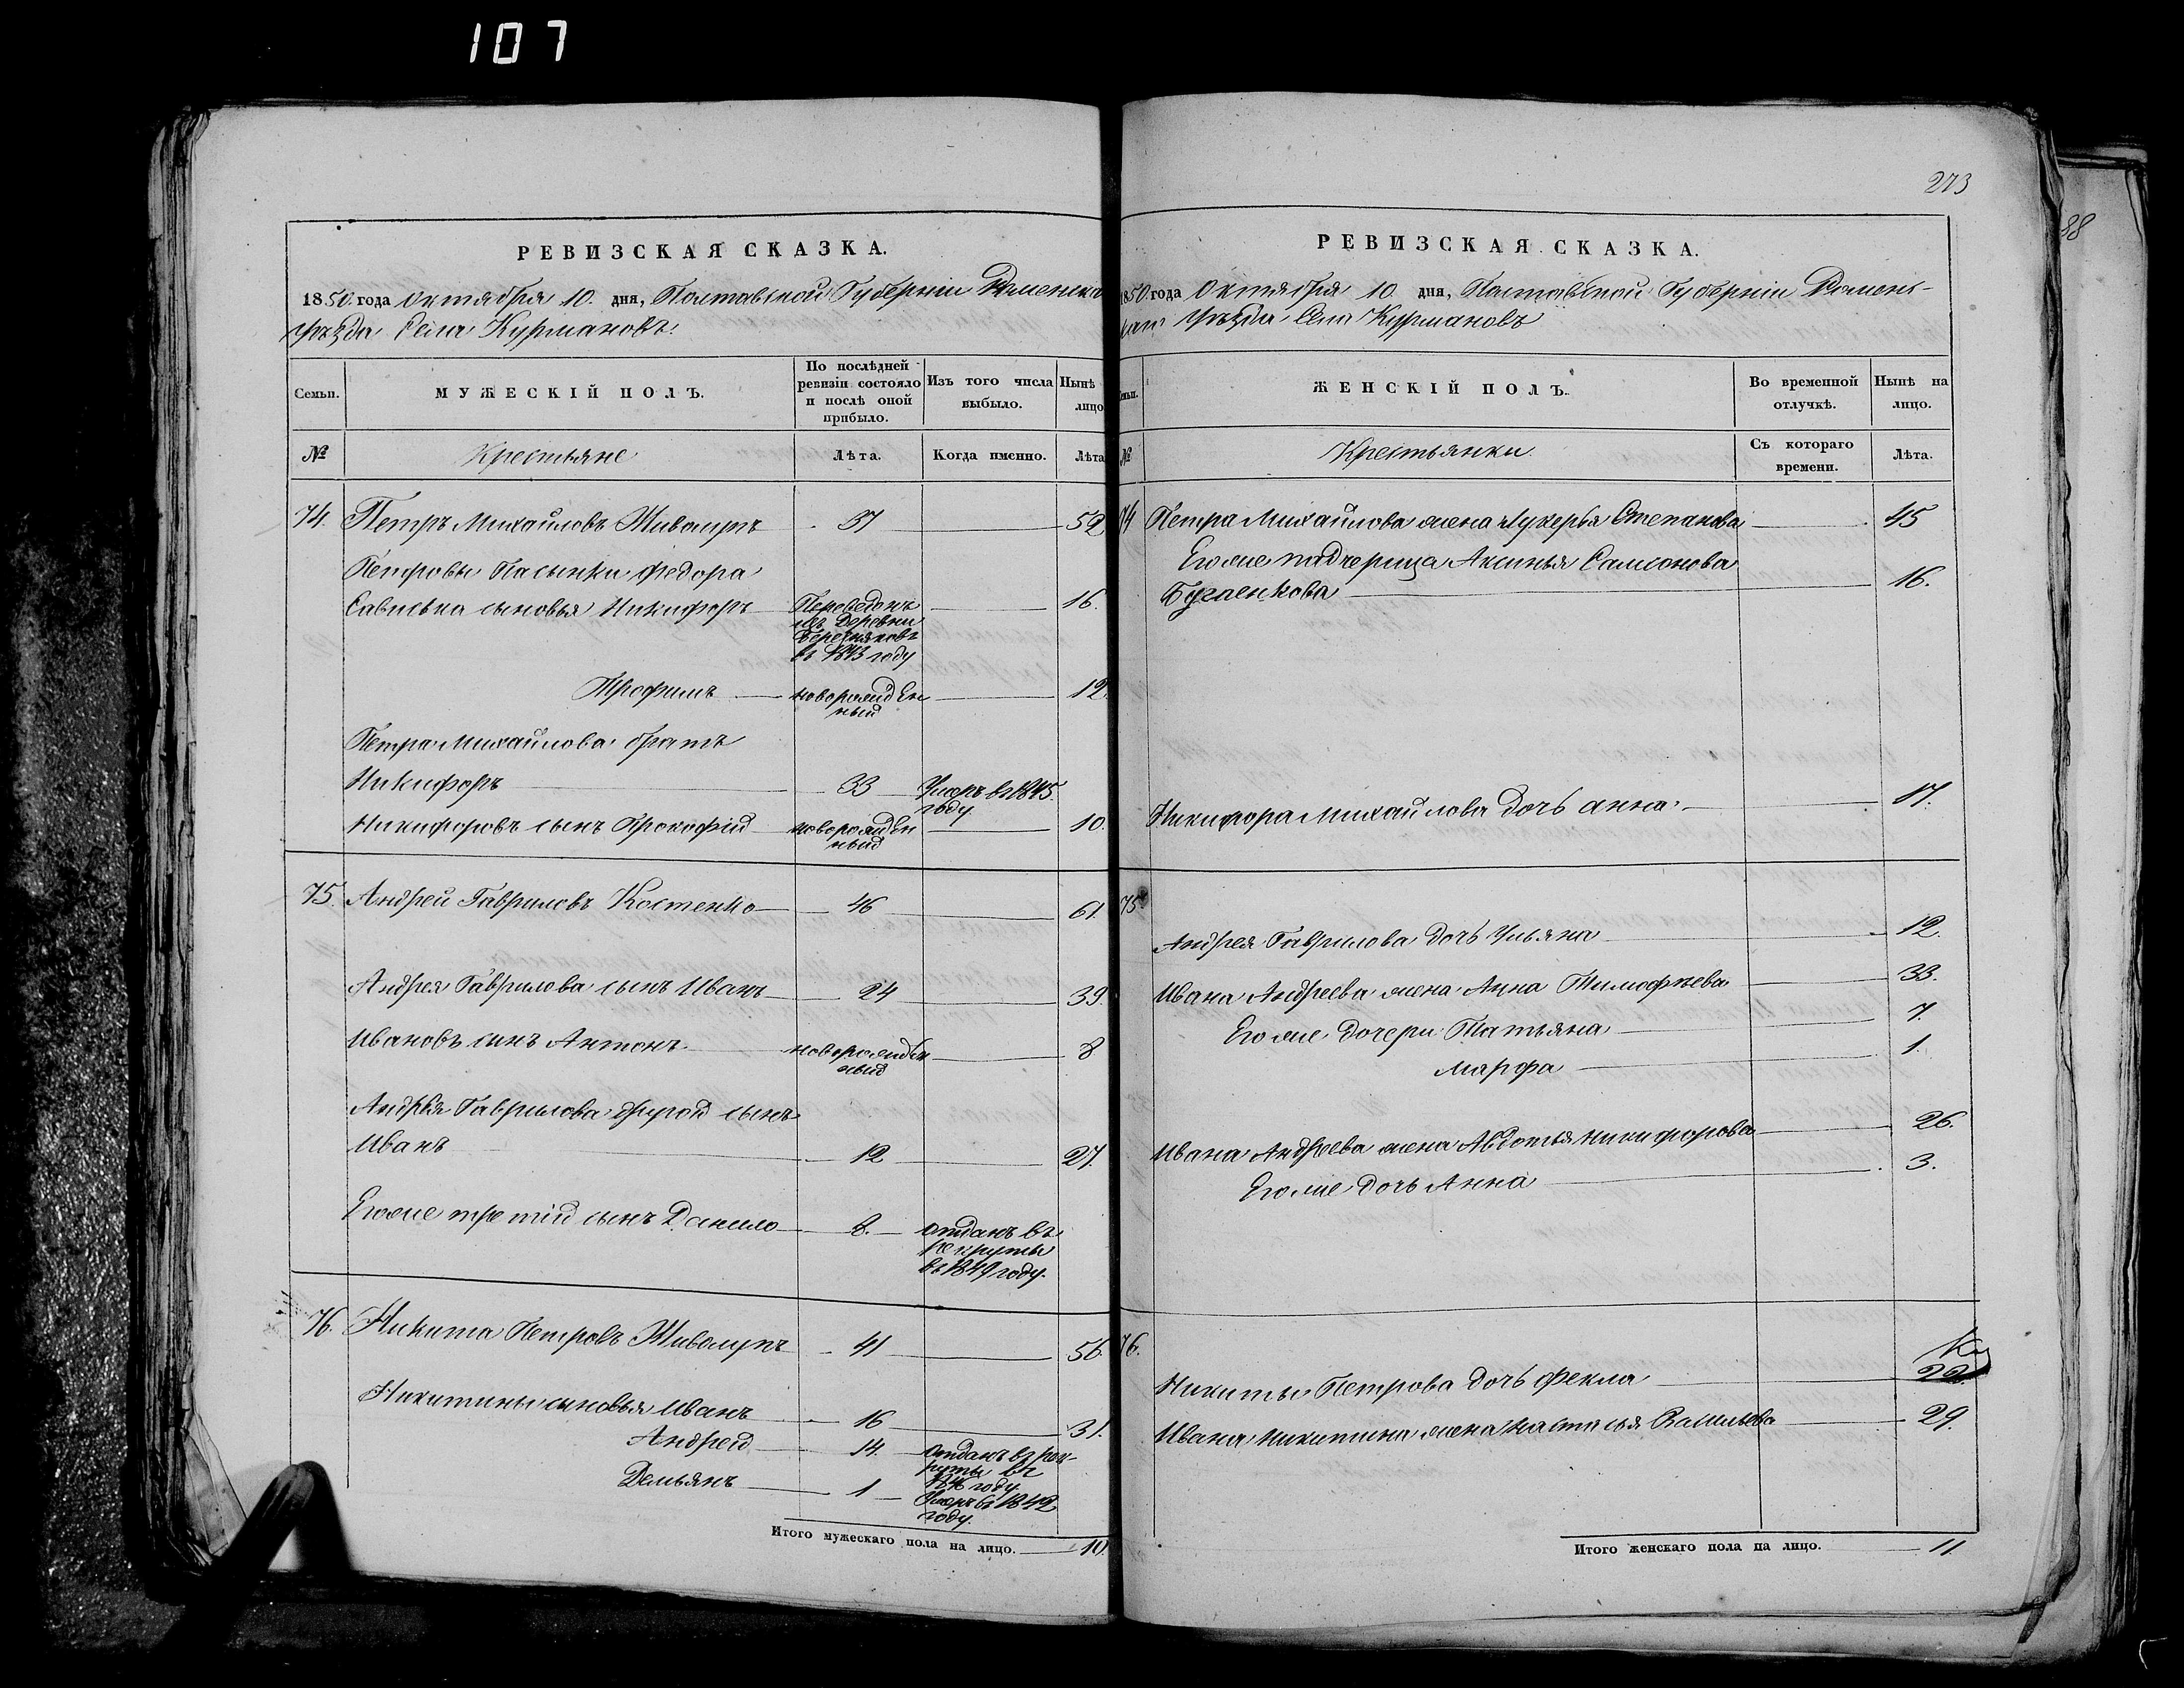 107
273
88
РЕВИЗСКАЯ СКАЗКА.
1850. года Октября 10. дня, Полтавской Губерніи Роменска
уѣзда Села Курмановъ.
Семьи.
МУЖЕСКІЙ ПОЛЪ.
По послѣдней
ревизіи состояло
и послѣ оной
прибыло.
Изъ того числа
выбыло.
Нынѣ
лицо
№
Крестьяне
Лѣта.
Когда именно.
Лѣта
74. Петръ Михайловъ Живолупъ 37 52
Петровы Пасынки Федора
сыновья Никифоръ Переведенъ 16.
изъ Деревни
въ 1843 году
Трофимъ новорожден 12.
ный
Петра Михайлова братъ
Никифоръ 33 Умеръ въ 1845.
году
Никифоровъ сынъ Прокофій новорожден 10.
ный
75. Андрей Гавриловъ Костенко 46 61.
Андрея Гаврилова сынъ Иванъ 24 39.
Ивановъ сынъ Антонъ новорожден 8
ный
Андрея Гаврилова другой сынъ
Иванъ 12 27.
Егоже третій сынъ Данило 8. отданъ въ
рекруты
въ 1849 году.
76. Никита Петровъ Живолупъ 41 56.
Никитины сыновья Иванъ 16 31.
Андрей 14. отданъ въ рек-
руты въ
году
Демьянъ 1 Умеръ въ 1842
году.
Итого мужескаго пола на лицо. 10.
РЕВИЗСКАЯ СКАЗКА.
1850. года Октября 10 дня, Полтавской Губерніи Роменс-
каго уѣзда Села Курмановъ
ЖЕНСКІЙ ПОЛЪ.
Во временной
отлучкѣ.
Нынѣ на
лицо.
№
Крестьянки
Съ котораго
времени.
Лѣта.
74 Петра Михайлова жена Лукерья Степанова 45
Егоже падчерица Аксинья Самсонова
Бугаенкова 16.
Никифора Михайлова дочь Анна 17.
75.
Андрея Гаврилова дочь Ульяна 12.
Ивана Андреева жена Анна Тимофѣева 33.
Егоже дочери Татьяна 7.
Марфа 1.
Ивана Андреева жена Авдотья Никифорова 26.
Егоже дочь Анна 3.
76.
Никиты Петрова дочь Фекла 22.
Ивана Никитина жена Настасья Васильева 29.
Итого женскаго пола на лицо. 11